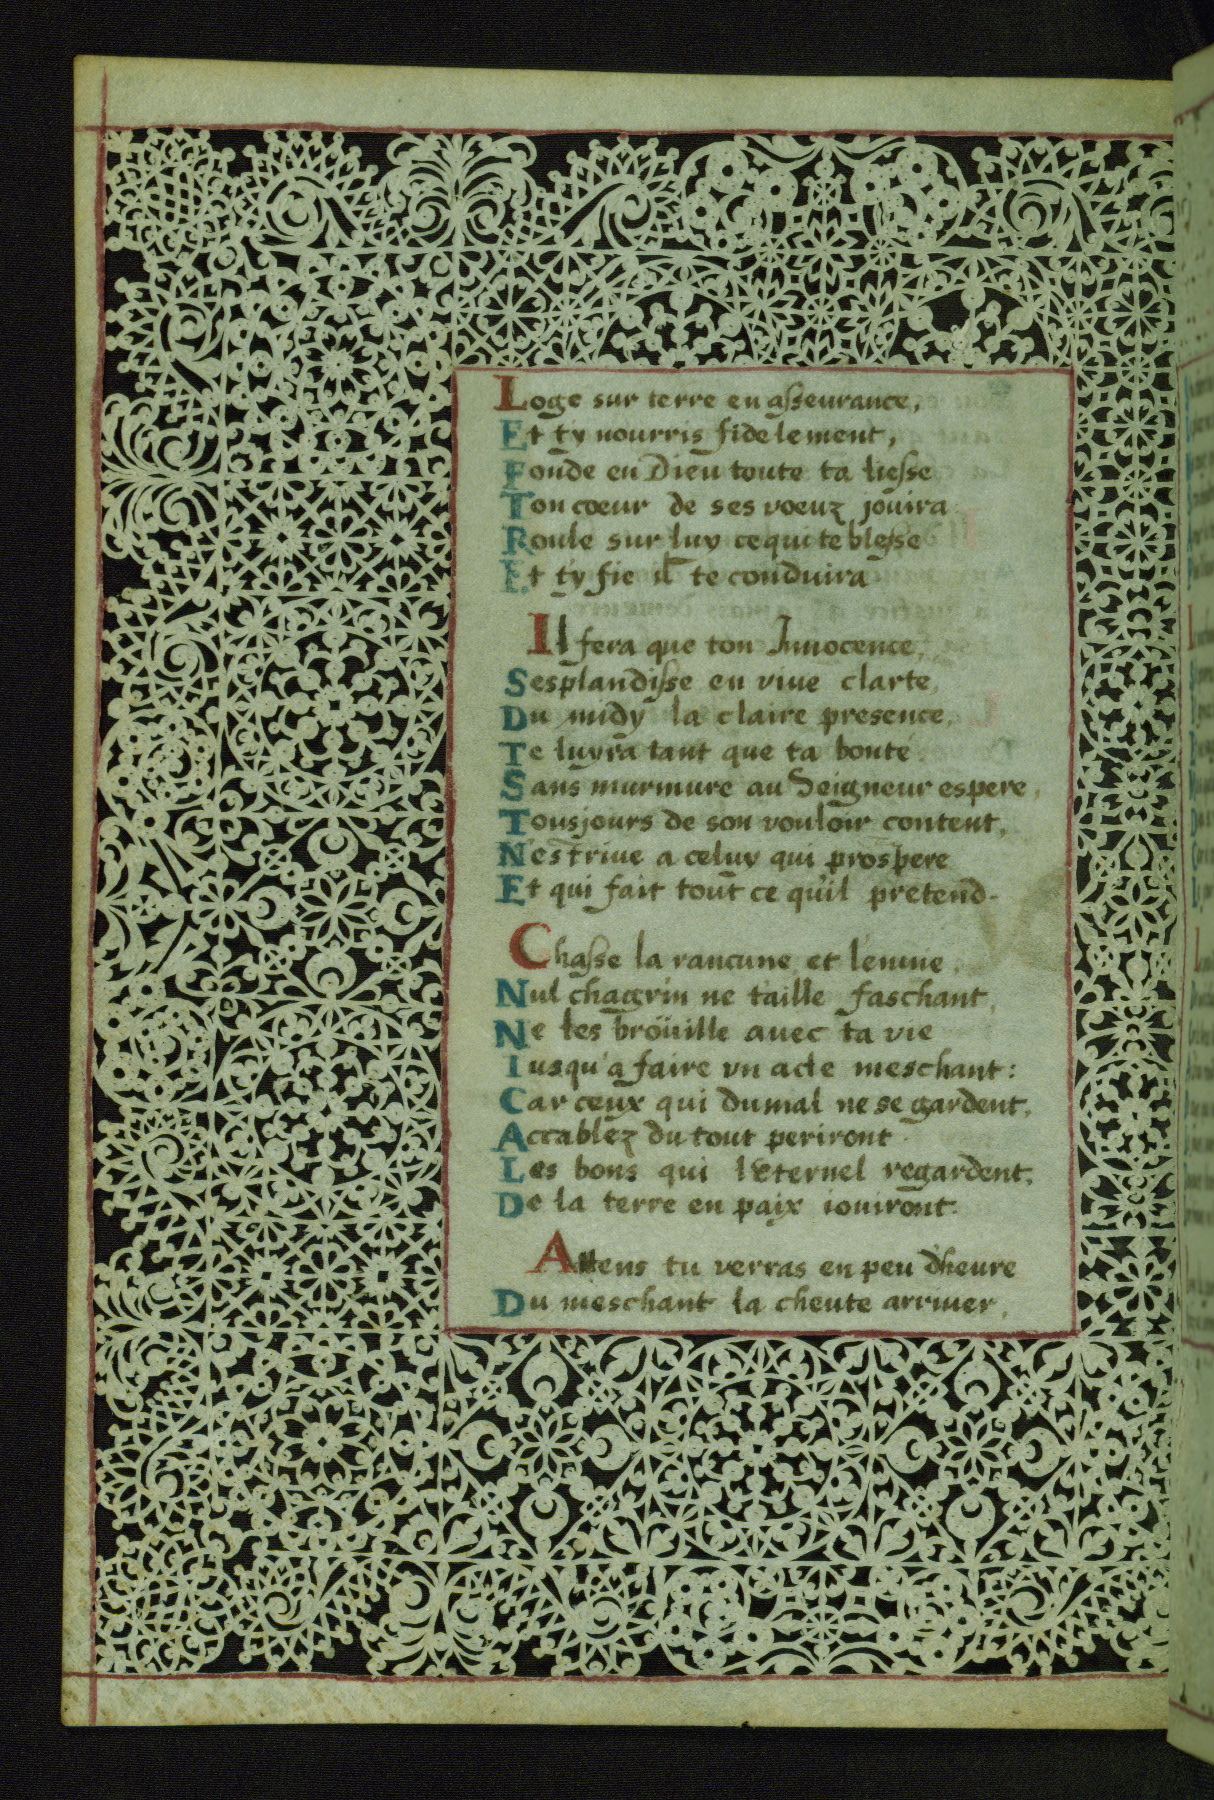 Loge sur terre en asseurance,
Et ty nourris fidelement,
Fonde en Dieu toute ta liesse
Ton cœur de ses voeuz jouira
Roule sur luy ce qui te blesse
Et ty fie il te conduira
Il fera que ton Innocence,
Sesplandisse en viue clarte,
Du midy la claire presence,
Te luyra tant que ta bonte
Sans murmure au Seigneur espere,
Tousjours de son vouloir content,
N'estriue a celuy qui prospere
Et qui fait tout ce qu'il pretend.
Chasse la rancune et l'enuie,
Nul chagrin ne taille faschant,
Ne les broüille auec ta vie
Iusqu'a faire vn acte meschant:
Car ceux qui du mal ne se gardent,
Accablez du tout periront
Les bons qui l'eternel regardent,
De la terre en paix iouiront.
Attens tu verras en peu d'heure
Du meschant la cheute arriuer,